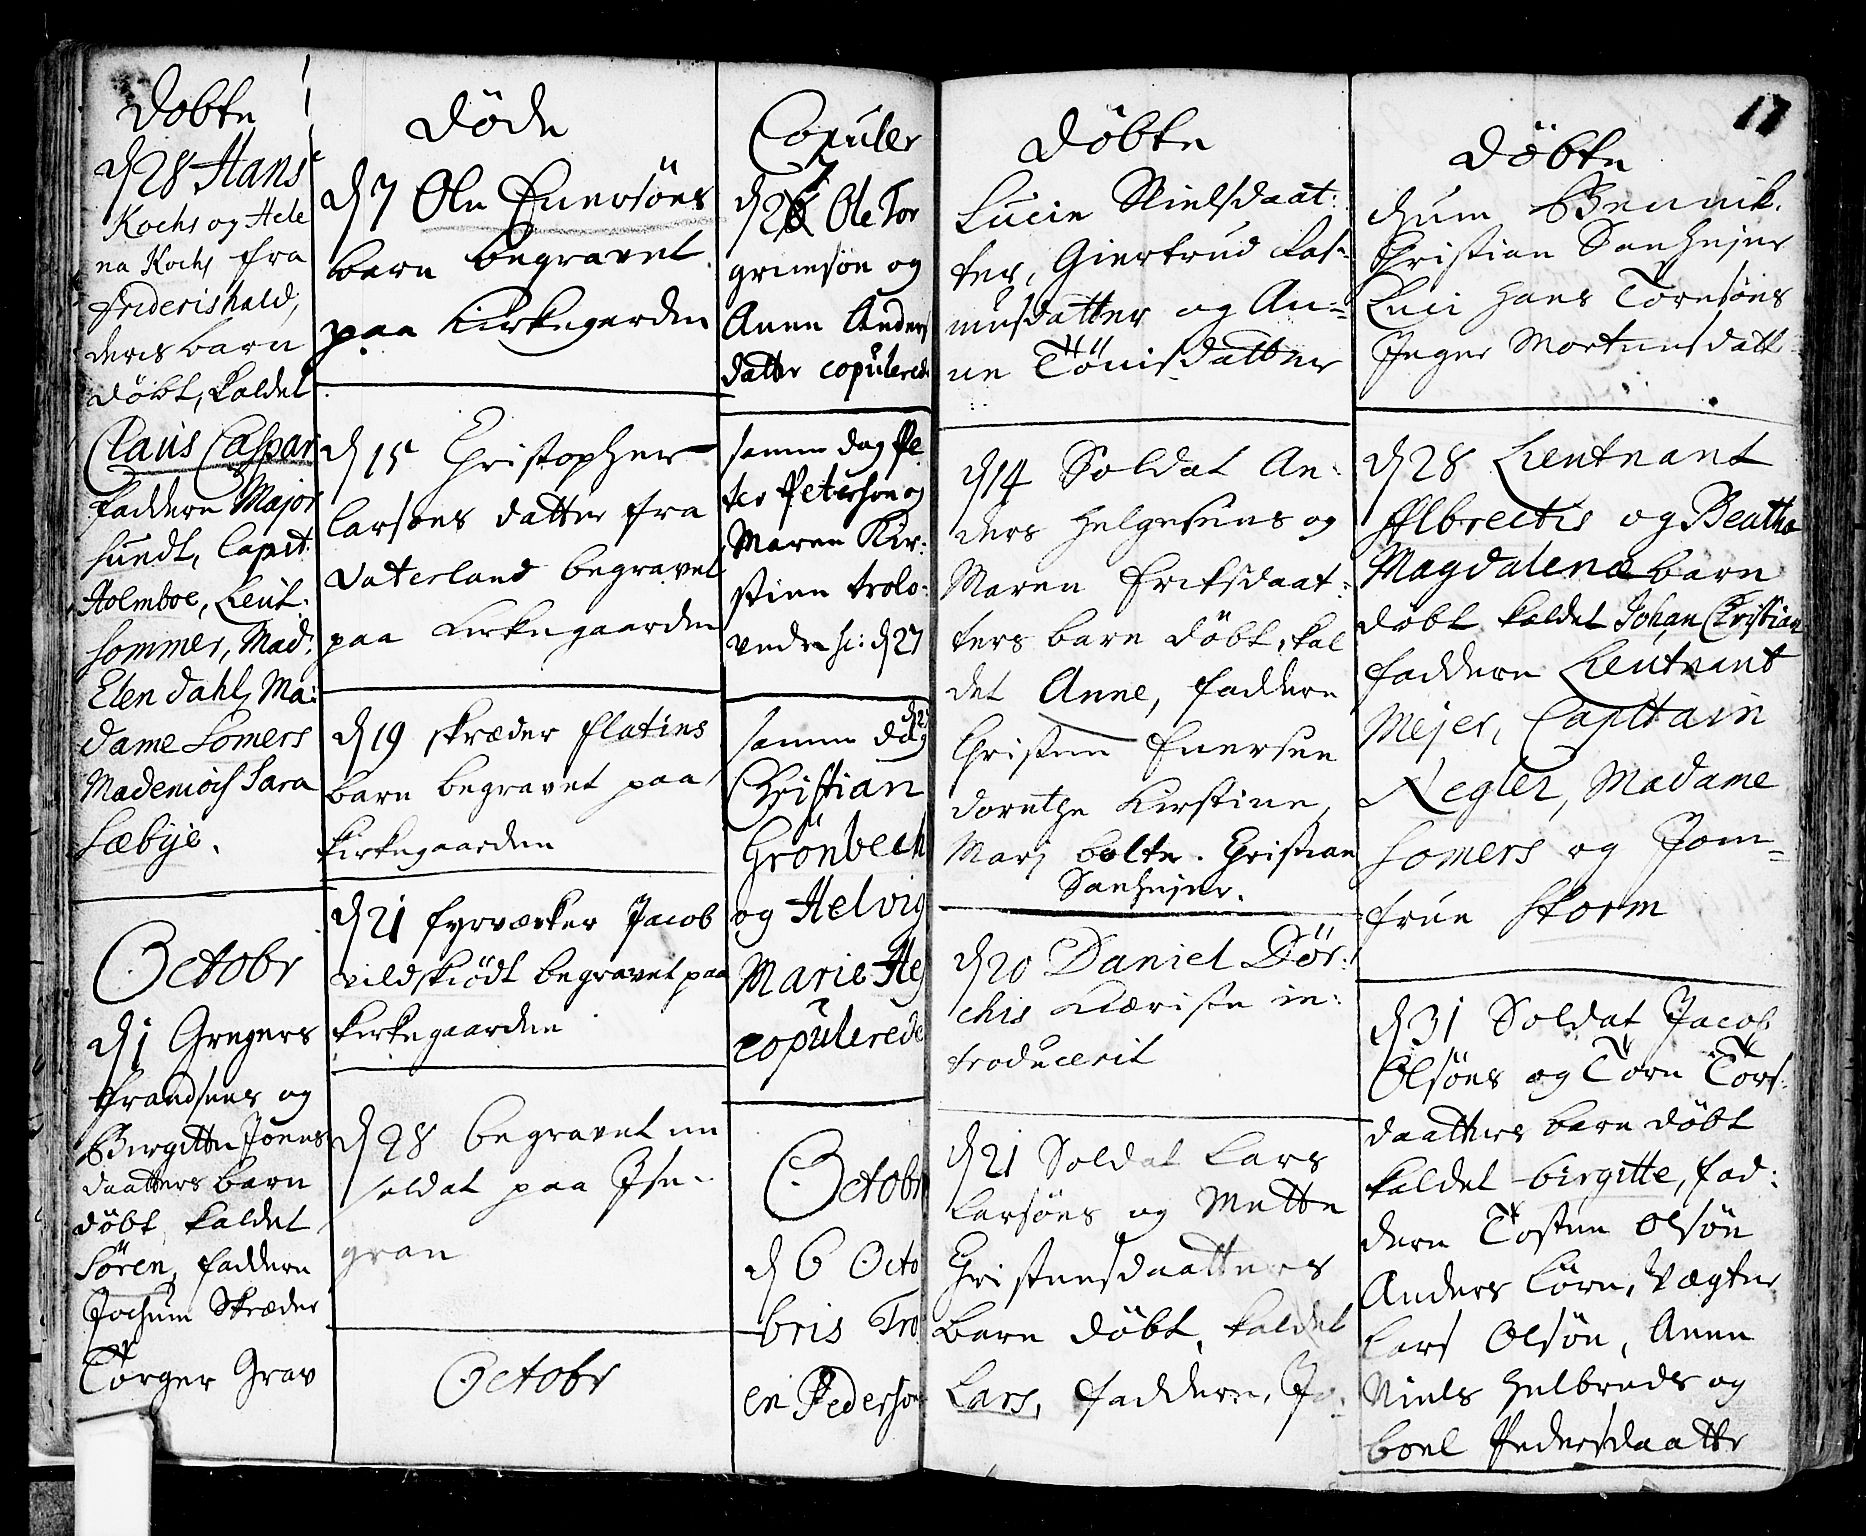 Døbte
d 28 Hans
Kochs og Hele
na Kochs fra
Friderishald,
deris barn
døbt, kaldet
Claus Caspar
faddere Major
Hundt, Capit:
Holmboe, Leut.
Sommer, Mad:
Elen Dahl, Ma:
dame Somers
Mademois Sara
Sæbye.
October
d 1 Gregers
Frandsens og
Birgitte Joens
daatters barn
døbt, kaldet
Søren, faddere
Jochum Skræder
Torger Grav
Døde
d 7 Ole Enersöns
barn begravet
paa Kirkegarden
d 15 Christopher
Larsens datter fra
Vaterland begravet
paa Kirkegaarden
d 19 skræder Flatins
barn begravet paa
Kirkegaarden
d 21 fyrværker Jacob
Vildskiödt begravet paa
Kirkegaarden
d 28 begravet en
soldat paa Ise-
gran
Octobr
Copuler
7
d 26 Ole Tor
grimsøn og
Anne Anders
datter copulered
samme dag Pe
ter Peterson og
Maren Kir:
stine trolo:
vede sc: d 27
samme dag
Christian
Grönbech
og Helvig
Marie He
copulerede
Octobr
d 6 Octo
bris Tro
en Pederson
Døbte
Lucie Nielsdaat:
ter, Giertrud Ras-
musdatter og An=
ne Tönisdatter
d 14 Soldat An:
ders Helgesens og
Maren Eriksdaat:
ters barn døbt, kal
det Anne, faddere
Christen Enersen
Dorethe Kirstine,
Mari bolte. Christian
Sanhejer.
d 20 Daniel Dör:
chis Kiæriste in:
troducerit
d 21 Soldat Lars
Larsöns og Mette
Christensdaatters
barn døbt, kaldet
Lars, faddere, Jo:
17
Døbte
chum Bennik.
Christian Sanhejer
Luci Hans Toresöns
Inger Mortensdatt
d 28 Lieutnant
Albrectis og Beatha
Magdalenæ barn
døbt kaldet Johan Christian
faddere Lieutnant
Mejer, Capitain
Negler, Madame
Somers og Jom=
frue Storm
d 31 Soldat Jacob
Olsöns og Tore Tors:
daatters barn døbt
kaldet birgitte, fad:
dere Tosten Olsøn
Anders Lörn, Vægter
Lars Olsøn, Anne
Niels Helbreds og
boel Pedersdaatter